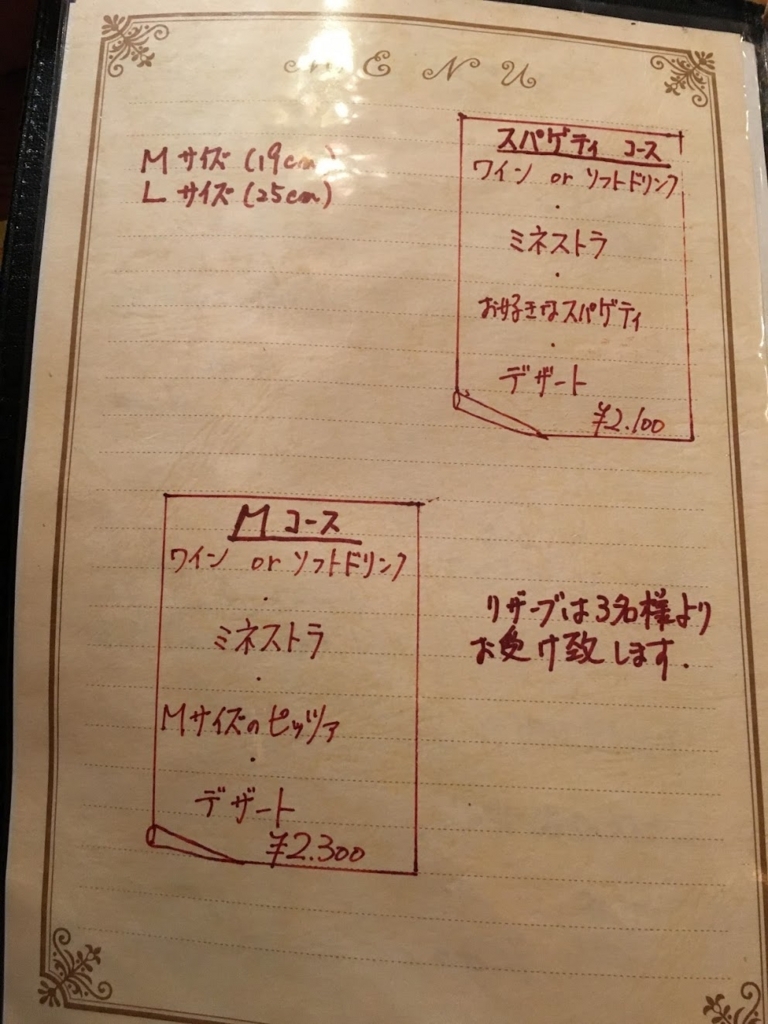 MENU
Mサイズ(19cm)
Lサイズ(25cm)
スパゲティ コース
ワイン or ソフトドリンク
・
ミネストラ
・
お好きなスパゲティ
・
デザート
¥2.100
Mコース
ワイン or ソフトドリンク
・
ミネストラ
・
Mサイズのピッツァ
・
デザート
¥2.300
リザーブは3名様より
お受け致します.